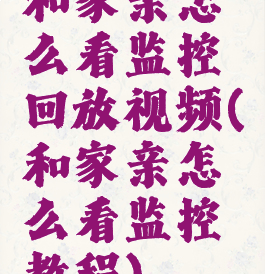 和家亲怎
么看监控
回放视频(
和家亲怎
么看监控
教程)